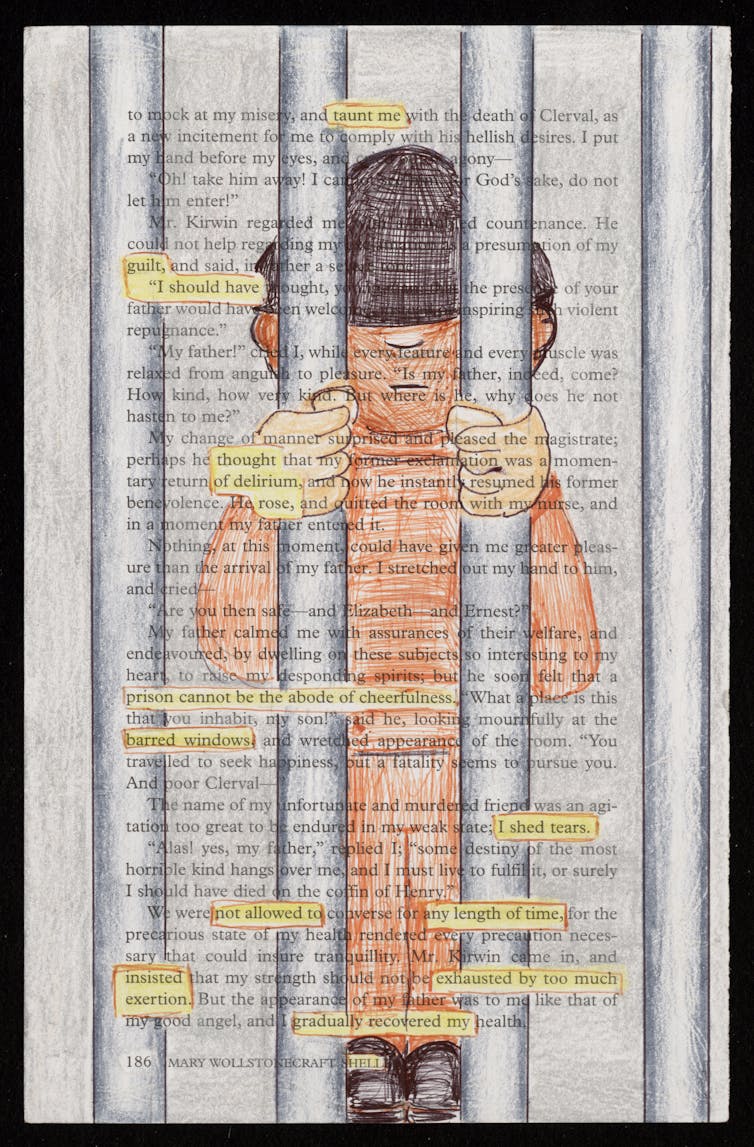 to mock at my misery, and taunt me with the death of Clerval, as
a new incitement for me to comply with his hellish desires. I put
my hand before my eyes, and agony—
“Oh! take him away! I for God’s sake, do not
let him enter!”
Mr. Kirwin regarded me countenance. He
could not help regarding my exclamation as a presumption of my
guilt, and said, in rather a severe tone—
“I should have thought, that the presence of your
father would have been welcome, inspiring such violent
repugnance.”
“My father!” cried I, while every feature and every muscle was
relaxed from anguish to pleasure. “Is my father, indeed, come?
How kind, how very kind. But where is he, why does he not
hasten to me?”
My change of manner surprised and pleased the magistrate;
perhaps he thought that my former exclamation was a momen-
tary return of delirium, and now he instantly resumed his former
benevolence. He rose, and quitted the room with my nurse, and
in a moment my father entered it.
Nothing, at this moment, could have given me greater pleas-
ure than the arrival of my father. I stretched out my hand to him,
and cried—
“Are you then safe—and Elizabeth—and Ernest?”
My father calmed me with assurances of their welfare, and
endeavoured, by dwelling on these subjects so interesting to my
heart, to raise my desponding spirits; but he soon felt that a
prison cannot be the abode of cheerfulness. “What a place is this
that you inhabit, my son!” said he, looking mournfully at the
barred windows, and wretched appearance of the room. “You
travelled to seek happiness, but a fatality seems to pursue you.
And poor Clerval—”
The name of my unfortunate and murdered friend was an agi-
tation too great to be endured in my weak state; I shed tears.
“Alas! yes, my father,” replied I; “some destiny of the most
horrible kind hangs over me, and I must live to fulfil it, or surely
I should have died on the coffin of Henry.”
We were not allowed to converse for any length of time, for the
precarious state of my health rendered every precaution neces-
sary that could insure tranquillity. Mr. Kirwin came in, and
insisted that my strength should not be exhausted by too much
exertion. But the appearance of my father was to me like that of
my good angel, and I gradually recovered my health.
186 MARY WOLLSTONECRAFT SHELL